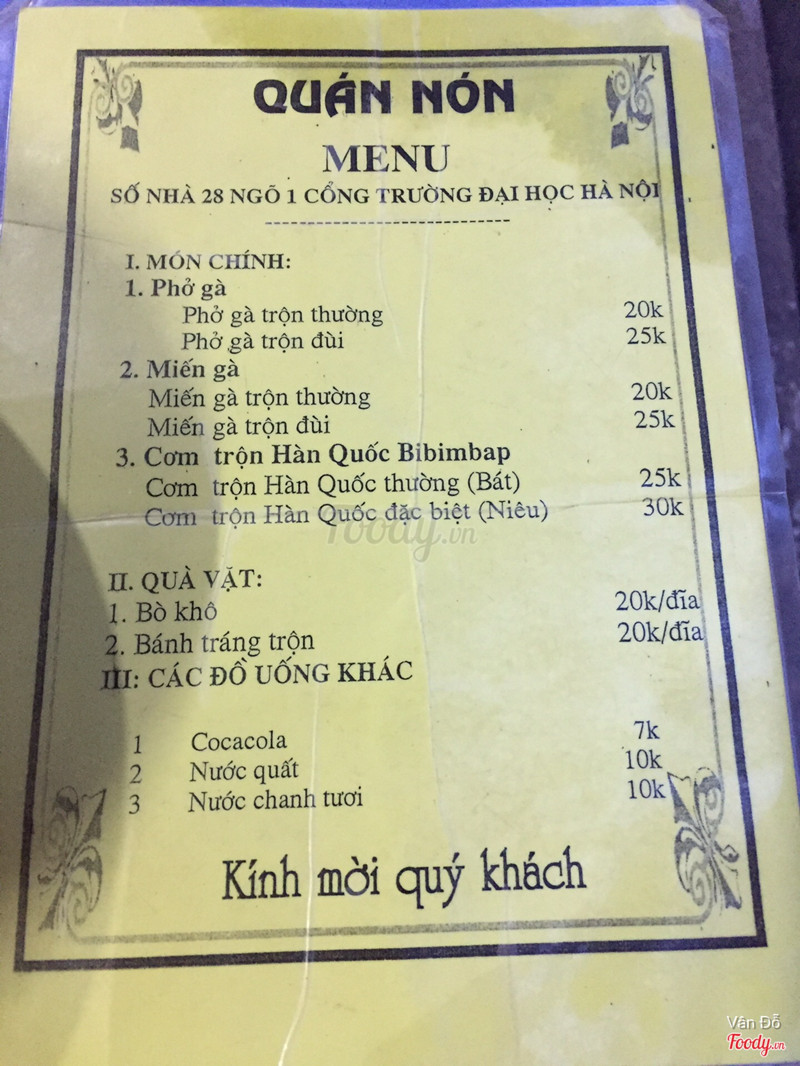 QUÁN NÓN
MENU
SỐ NHÀ 28 NGÕ 1 CỔNG TRƯỜNG ĐẠI HỌC HÀ NỘI
I. MÓN CHÍNH:
1. Phở gà
Phở gà trộn thường 20k
Phở gà trộn đùi 25k
2. Miến gà
Miến gà trộn thường 20k
Miến gà trộn đùi 25k
3. Cơm trộn Hàn Quốc Bibimbap
Cơm trộn Hàn Quốc thường (Bát) 25k
Cơm trộn Hàn Quốc đặc biệt (Niêu) 30k
Foody.vn
II. QUÀ VẶT:
1. Bò khô 20k/đĩa
2. Bánh tráng trộn 20k/đĩa
III: CÁC ĐỒ UỐNG KHÁC
1 Cocacola 7k
2 Nước quất 10k
3 Nước chanh tươi 10k
Kính mời quý khách
Vân Đỗ
Foody.vn